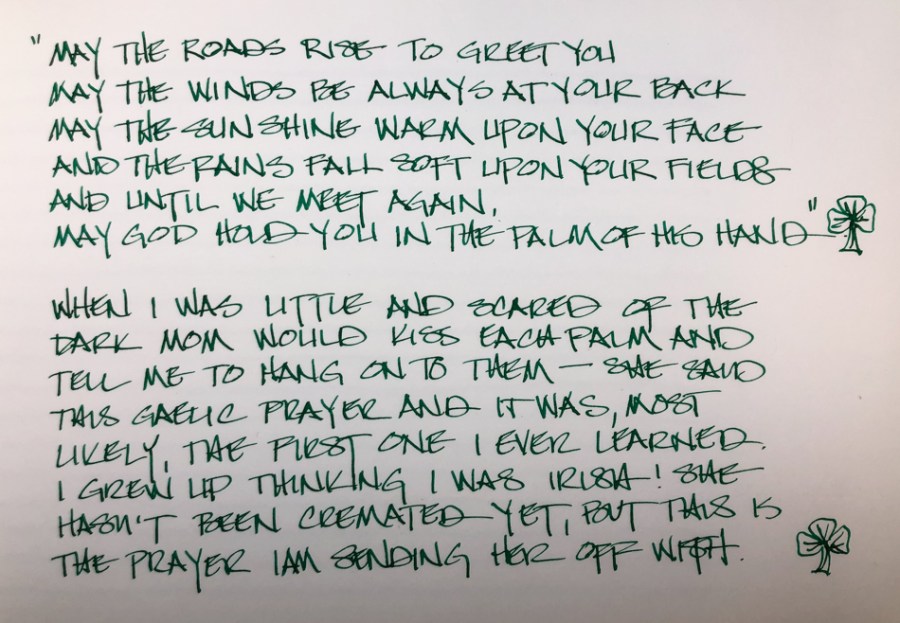 "MAY THE ROADS RISE TO GREET YOU
MAY THE WINDS BE ALWAYS AT YOUR BACK
MAY THE SUN SHINE WARM UPON YOUR FACE
AND THE RAINS FALL SOFT UPON YOUR FIELDS
AND UNTIL WE MEET AGAIN,
MAY GOD HOLD YOU IN THE PALM OF HIS HAND"
WHEN I WAS LITTLE AND SCARED OF THE
DARK MOM WOULD KISS EACH PALM AND
TELL ME TO HANG ON TO THEM — SHE SAID
THIS GAELIC PRAYER AND IT WAS, MOST
LIKELY, THE FIRST ONE I EVER LEARNED.
I GREW UP THINKING I WAS IRISH! SHE
HASN'T BEEN CREMATED YET, BUT THIS IS
THE PRAYER I AM SENDING HER OFF WITH.